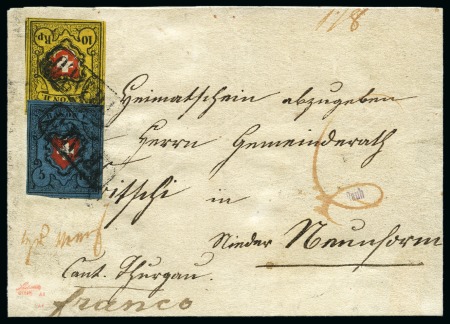 178
10
Rp
5
Heimatschein abzugeben
Herrn Gemeinderath
in
Nieder Neunform
Cant. Thurgau.
franco